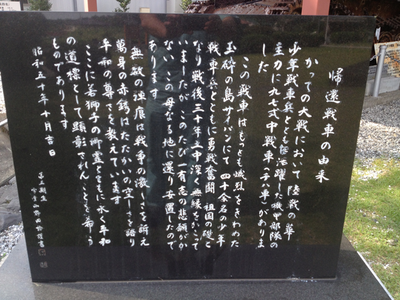 帰還戦車の由来
かつての大戦において 陸戦の華
少年戦車兵とともに活躍した機甲部隊の
主力に九七式中戦車(チハ車)がありま
した
この戦車は もっとも熾烈をきわめた
玉砕の島サイパンにて 四十余名の少年
戦車兵とともに勇戦奮闘 祖国の礎と
なり 戦後三十年土中深く無縁をかこって
いましたが このたび有志の悲願が
ない この母なる地に還り 安置したので
あります
無数の弾痕は 戦車の激しさを訴え
萬身の赤錆は たたかいの空しさを語り
平和の尊さを教えています
ここに若獅子の御霊とともに 永く平和
の道標として顕彰されんことを希う
ものであります
昭和五十年十月吉日